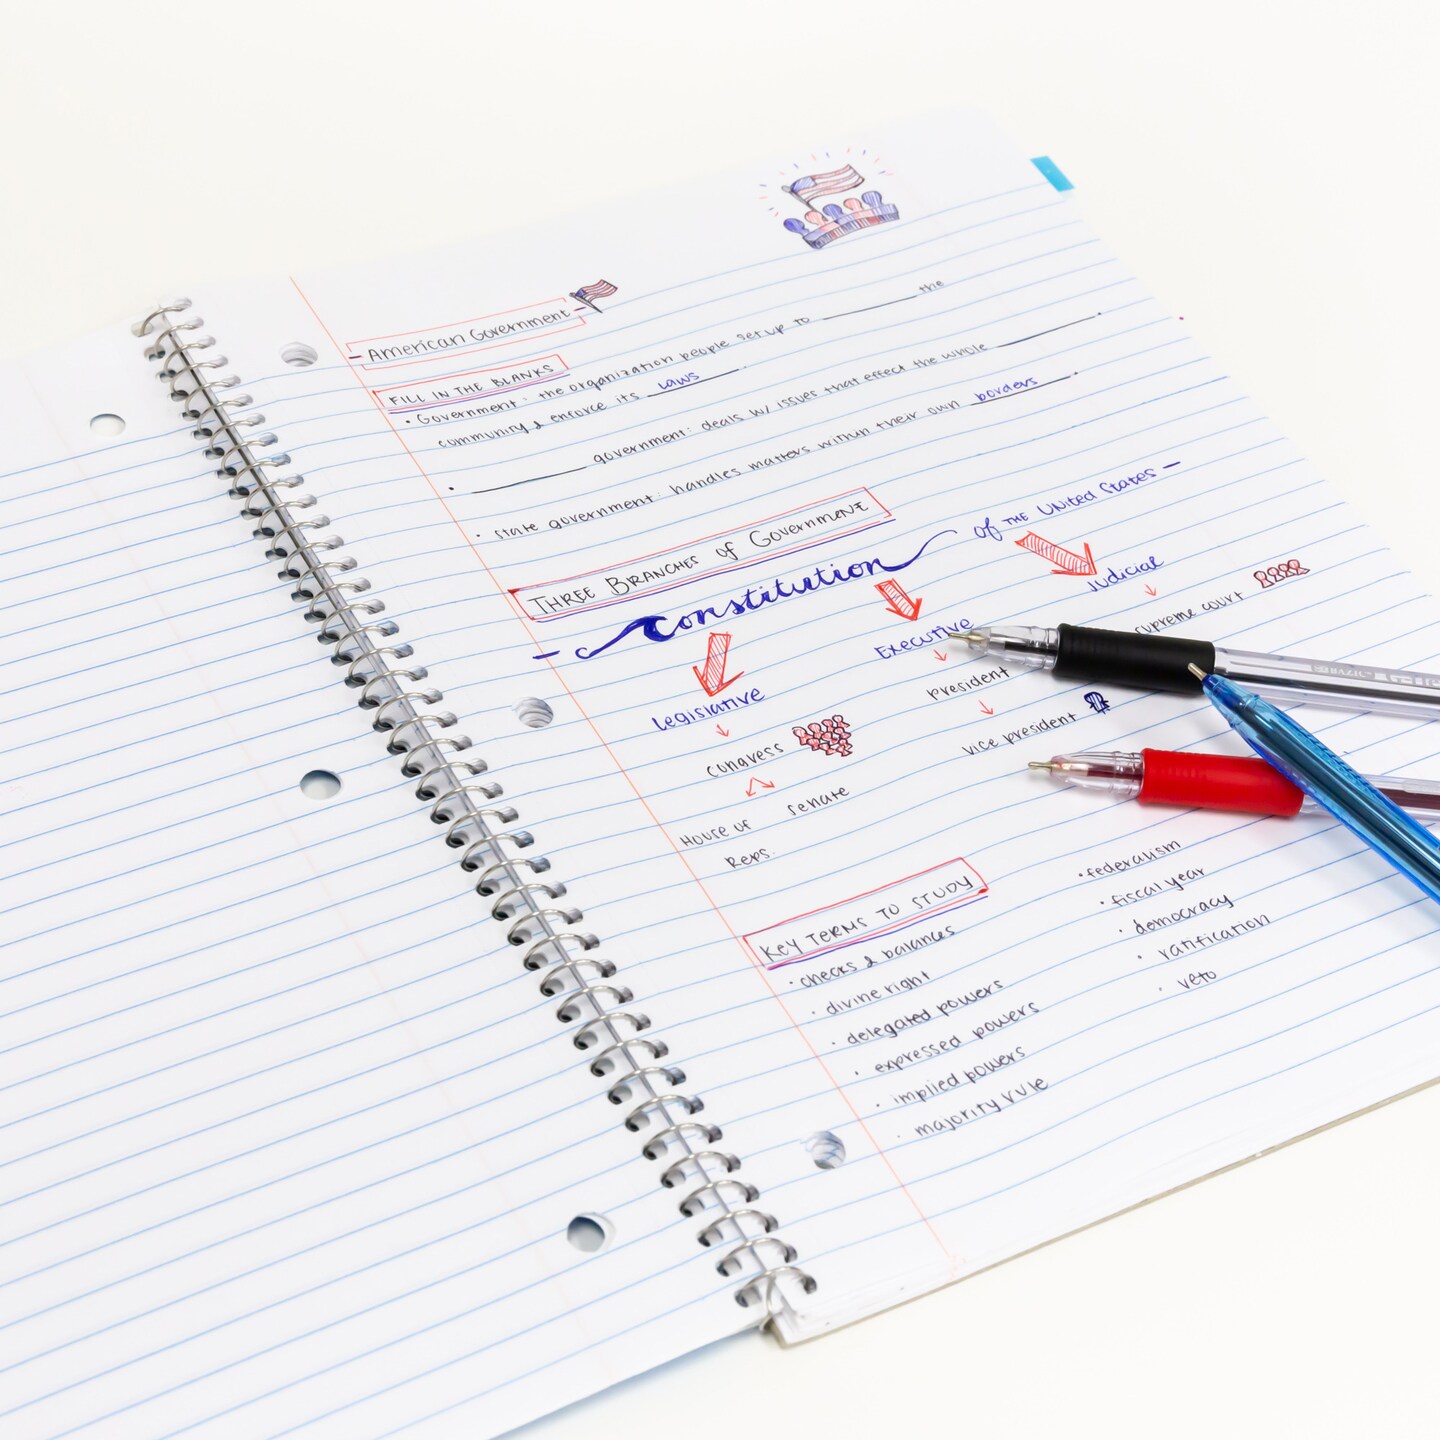 American Government
FILL IN THE BLANKS
• Government: the organization people set up to ________ the
community & enforce its laws.
• ________ government: deals w/ issues that effect the whole ________.
• state government: handles matters within their own borders.
THREE BRANCHES of GOVERNMENT
Constitution of THE UNITED STATES
Legislative
congress
House of
Reps.
senate
Executive
president
vice president
Judicial
supreme court
KEY TERMS TO STUDY
• checks & balances
• divine right
• delegated powers
• expressed powers
• implied powers
• majority rule
• federalism
• fiscal year
• democracy
• ratification
• veto
BAZIC